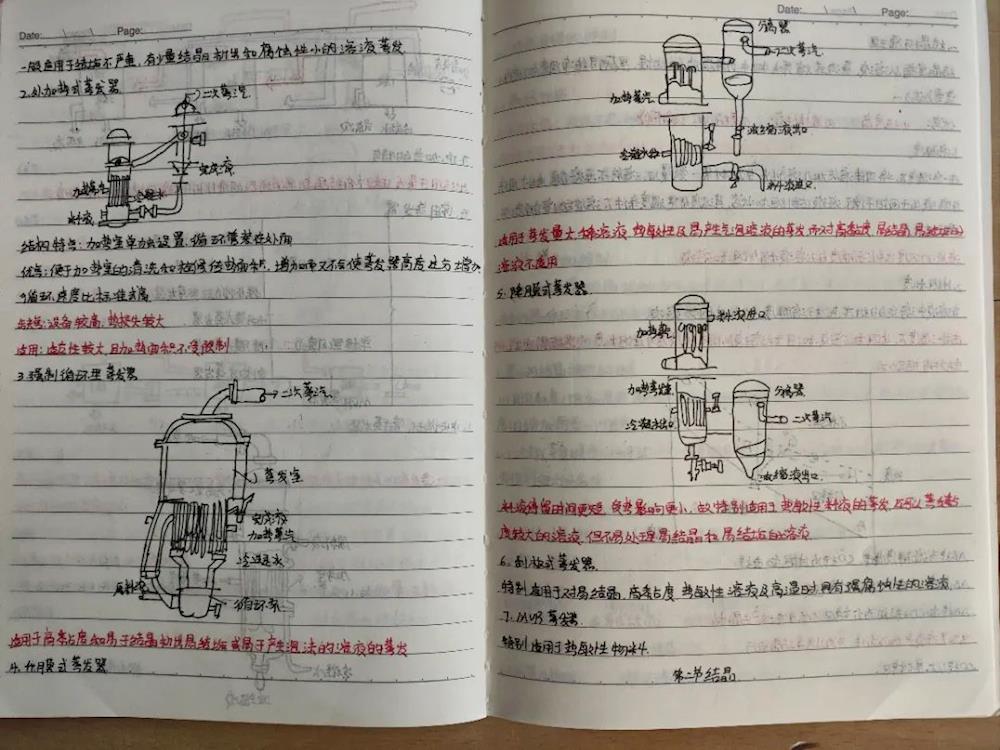 Date: Page:
一般应用于结垢不严重,有少量结晶析出和腐蚀性小的溶液蒸发
2.外加热式蒸发器
二次蒸汽
完成液
加热蒸汽
冷凝水
料液
结构特点:加热室单独设置,循环管装在外面
优点:便于加热室的清洗和检修传热面积,增加而又不会使蒸发器高度过分增加
循环速度比标准式高
缺点:设备较高,热损失较大
适用:适应性较大,且加热面积不受限制
3.强制循环型蒸发器
二次蒸汽
蒸发室
完成液
加热蒸汽
冷凝水
原料液
循环泵
适用于高黏度和易于结晶析出易结垢或易于产生泡沫的溶液的蒸发
4.升膜式蒸发器
Date: Page:
分离器
二次蒸汽
加热蒸汽
浓缩液出口
冷凝水
料液进口
适用于蒸发量大,稀溶液,热敏性及易产生气泡溶液的蒸发而对高黏度,易结晶,易结垢的
溶液不适用
5.降膜式蒸发器
料液进口
加热
加热蒸发室
分离器
冷凝水出口
二次蒸汽
浓缩液出口
料液停留时间更短,受热影响更小,故特别适用于热敏性料液的蒸发,还可以蒸发黏
度较大的溶液,但不易处理易结晶和易结垢的溶液
6.刮板式蒸发器
特别适用于对易结晶,高黏度,热敏性溶液及高温时具有强腐蚀性的溶液
7.蒸发器
特别适用于热敏性物料
第二节结晶